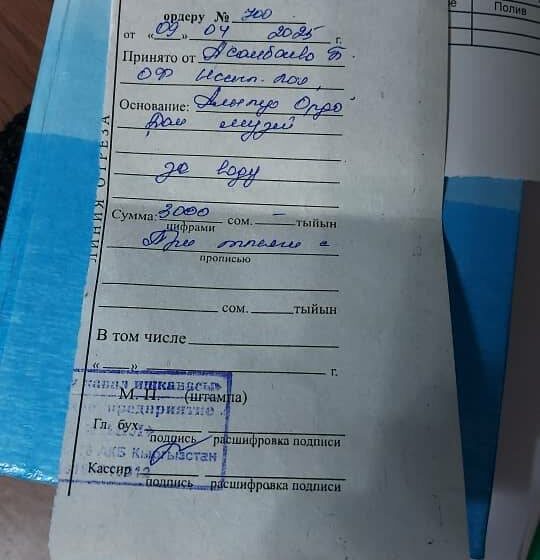 Полив
ордеру № 700
от «09» 04 2025 г.
Принято от Асанбаево Б.
ОФ
Основание: Ордо
Дом музей
за воду
Сумма: 3000 сом. – тыйын
цифрами
Три тысячи с
прописью
сом. тыйын
В том числе
« » г.
М. П. (штампа)
Гл. бух.
подпись расшифровка подписи
Кассир
подпись расшифровка подписи
ЛИНИЯ ОТРЕЗА
канал ишканасы»
предприятие
АКБ Кыргызстан